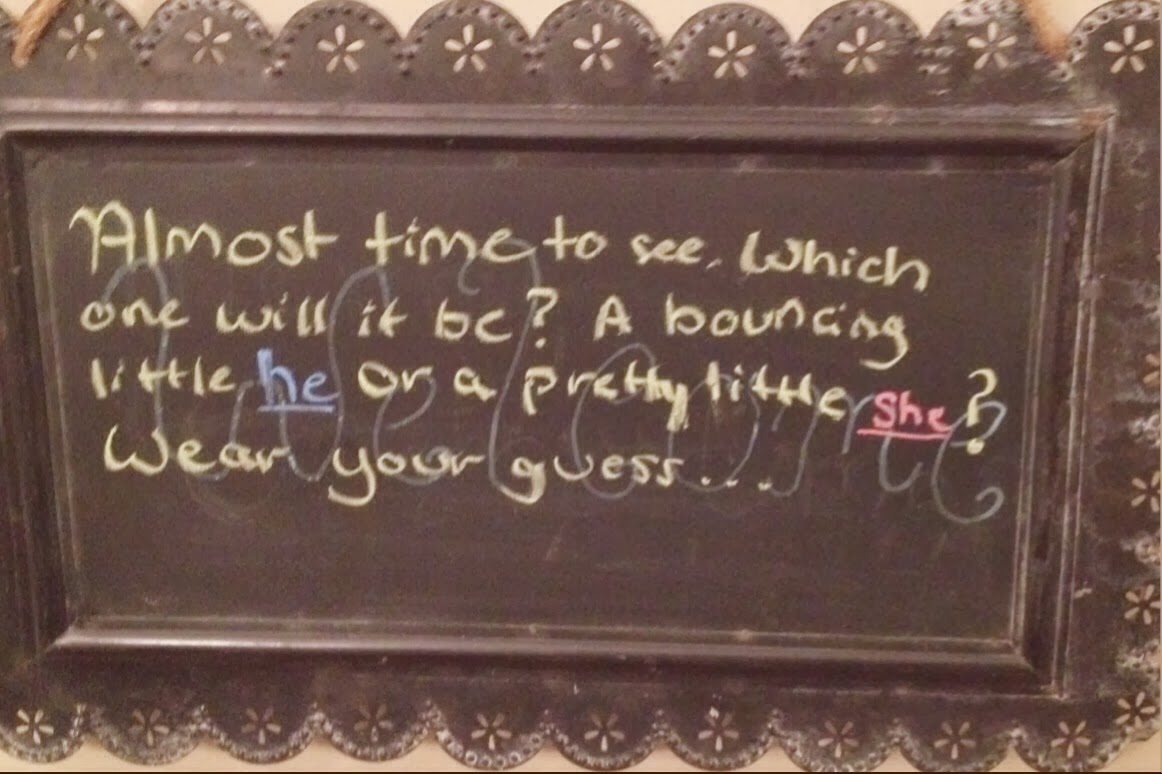 Almost time to see. Which
one will it be? A bouncing
little he or a pretty little she?
Wear your guess...
Welcome